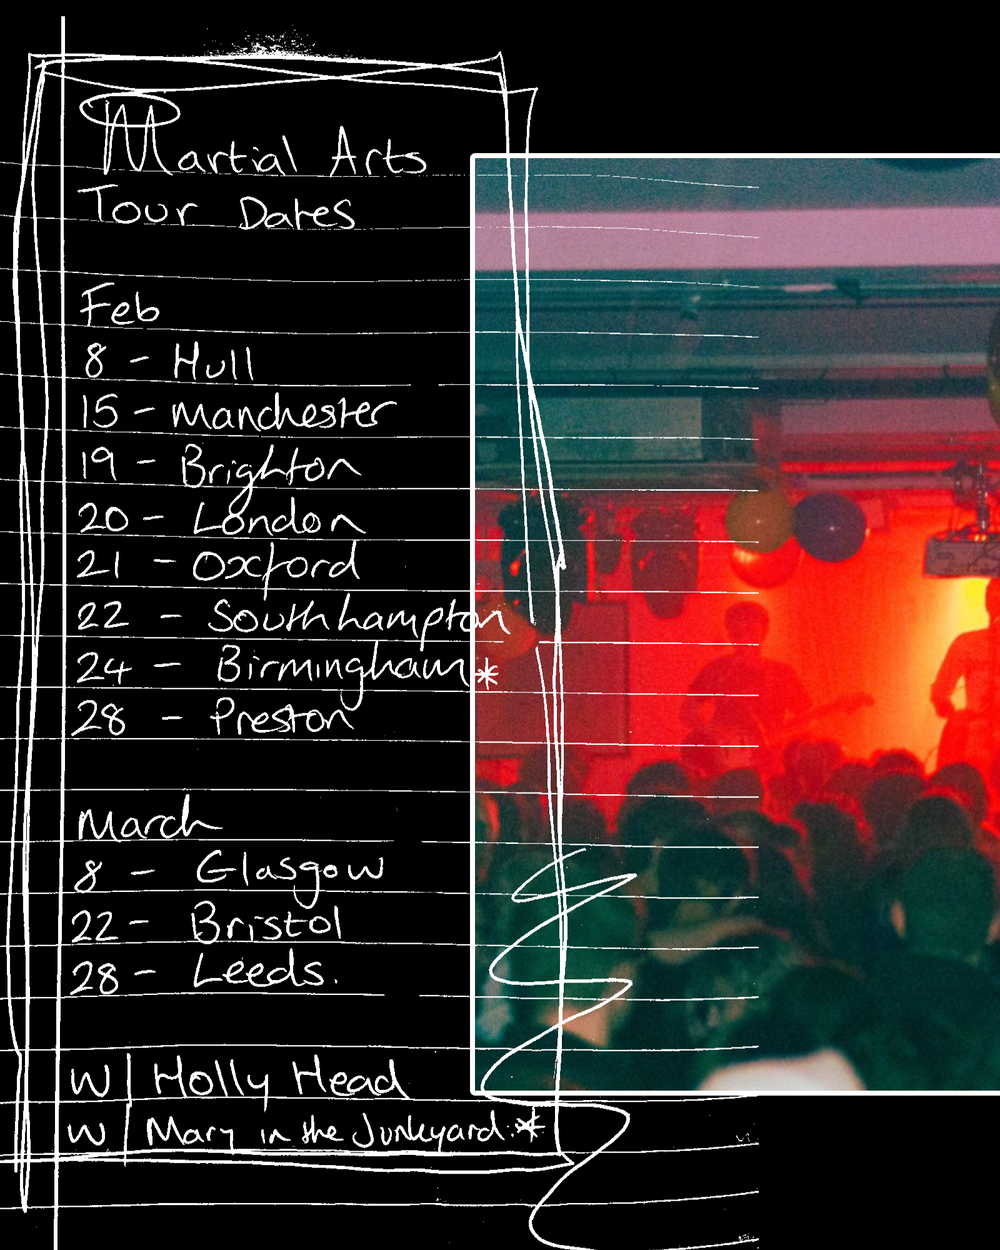 Martial Arts
Tour Dates
Feb
8 - Hull
15 - Manchester
19 - Brighton
20 - London
21 - Oxford
22 - Southhampton
24 - Birmingham *
28 - Preston
March
8 - Glasgow
22 - Bristol
28 - Leeds.
W | Holly Head
W | Mary in the Junkyard. *